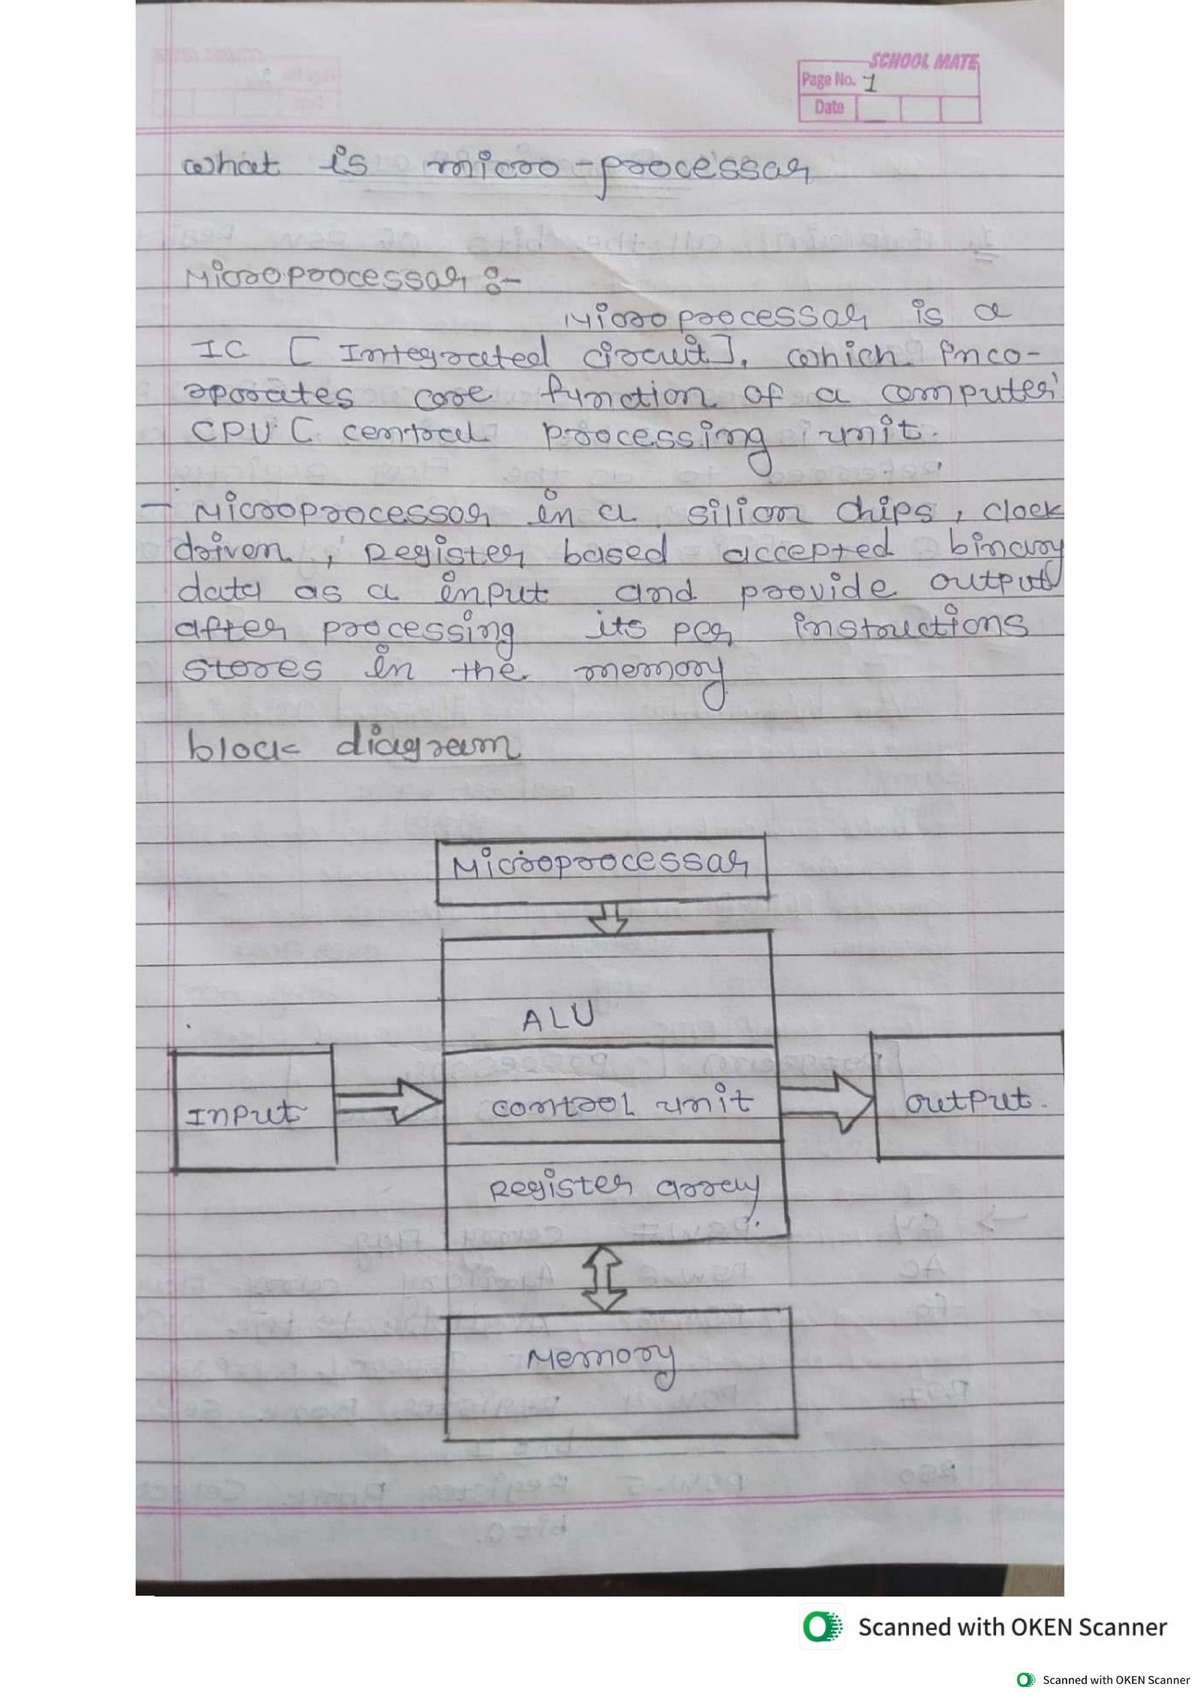 SCHOOL MATE
Page No. 1
Date
What is micro-processor
Microprocessor :-
Microprocessor is a
IC [ Integrated circuit ], which inco-
oporates core function of a computer
CPU ( central processing unit.
- Microprocessor in a silion chips, clock
driven, Register based accepted binary
data as a input and provide output
after processing its per instructions
stores in the memory
block diagram
Microprocessor
ALU
Input
control unit
output.
Register array
Memory
Scanned with OKEN Scanner
Scanned with OKEN Scanner